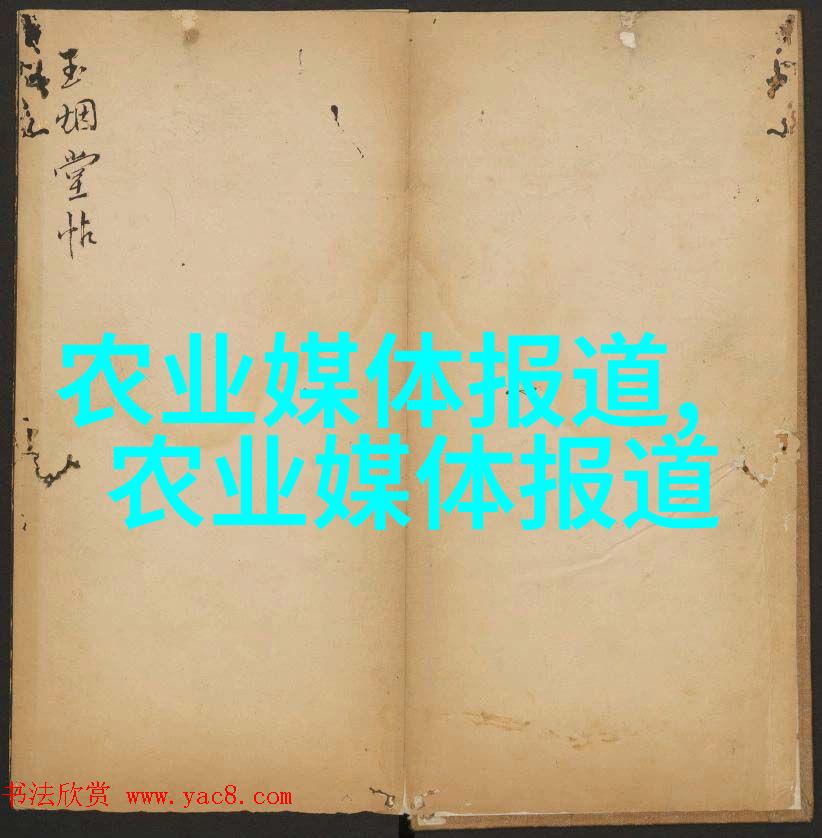 玉烟堂帖
农业媒体报道,
农业媒体报道
书法欣赏 www.yac8.com